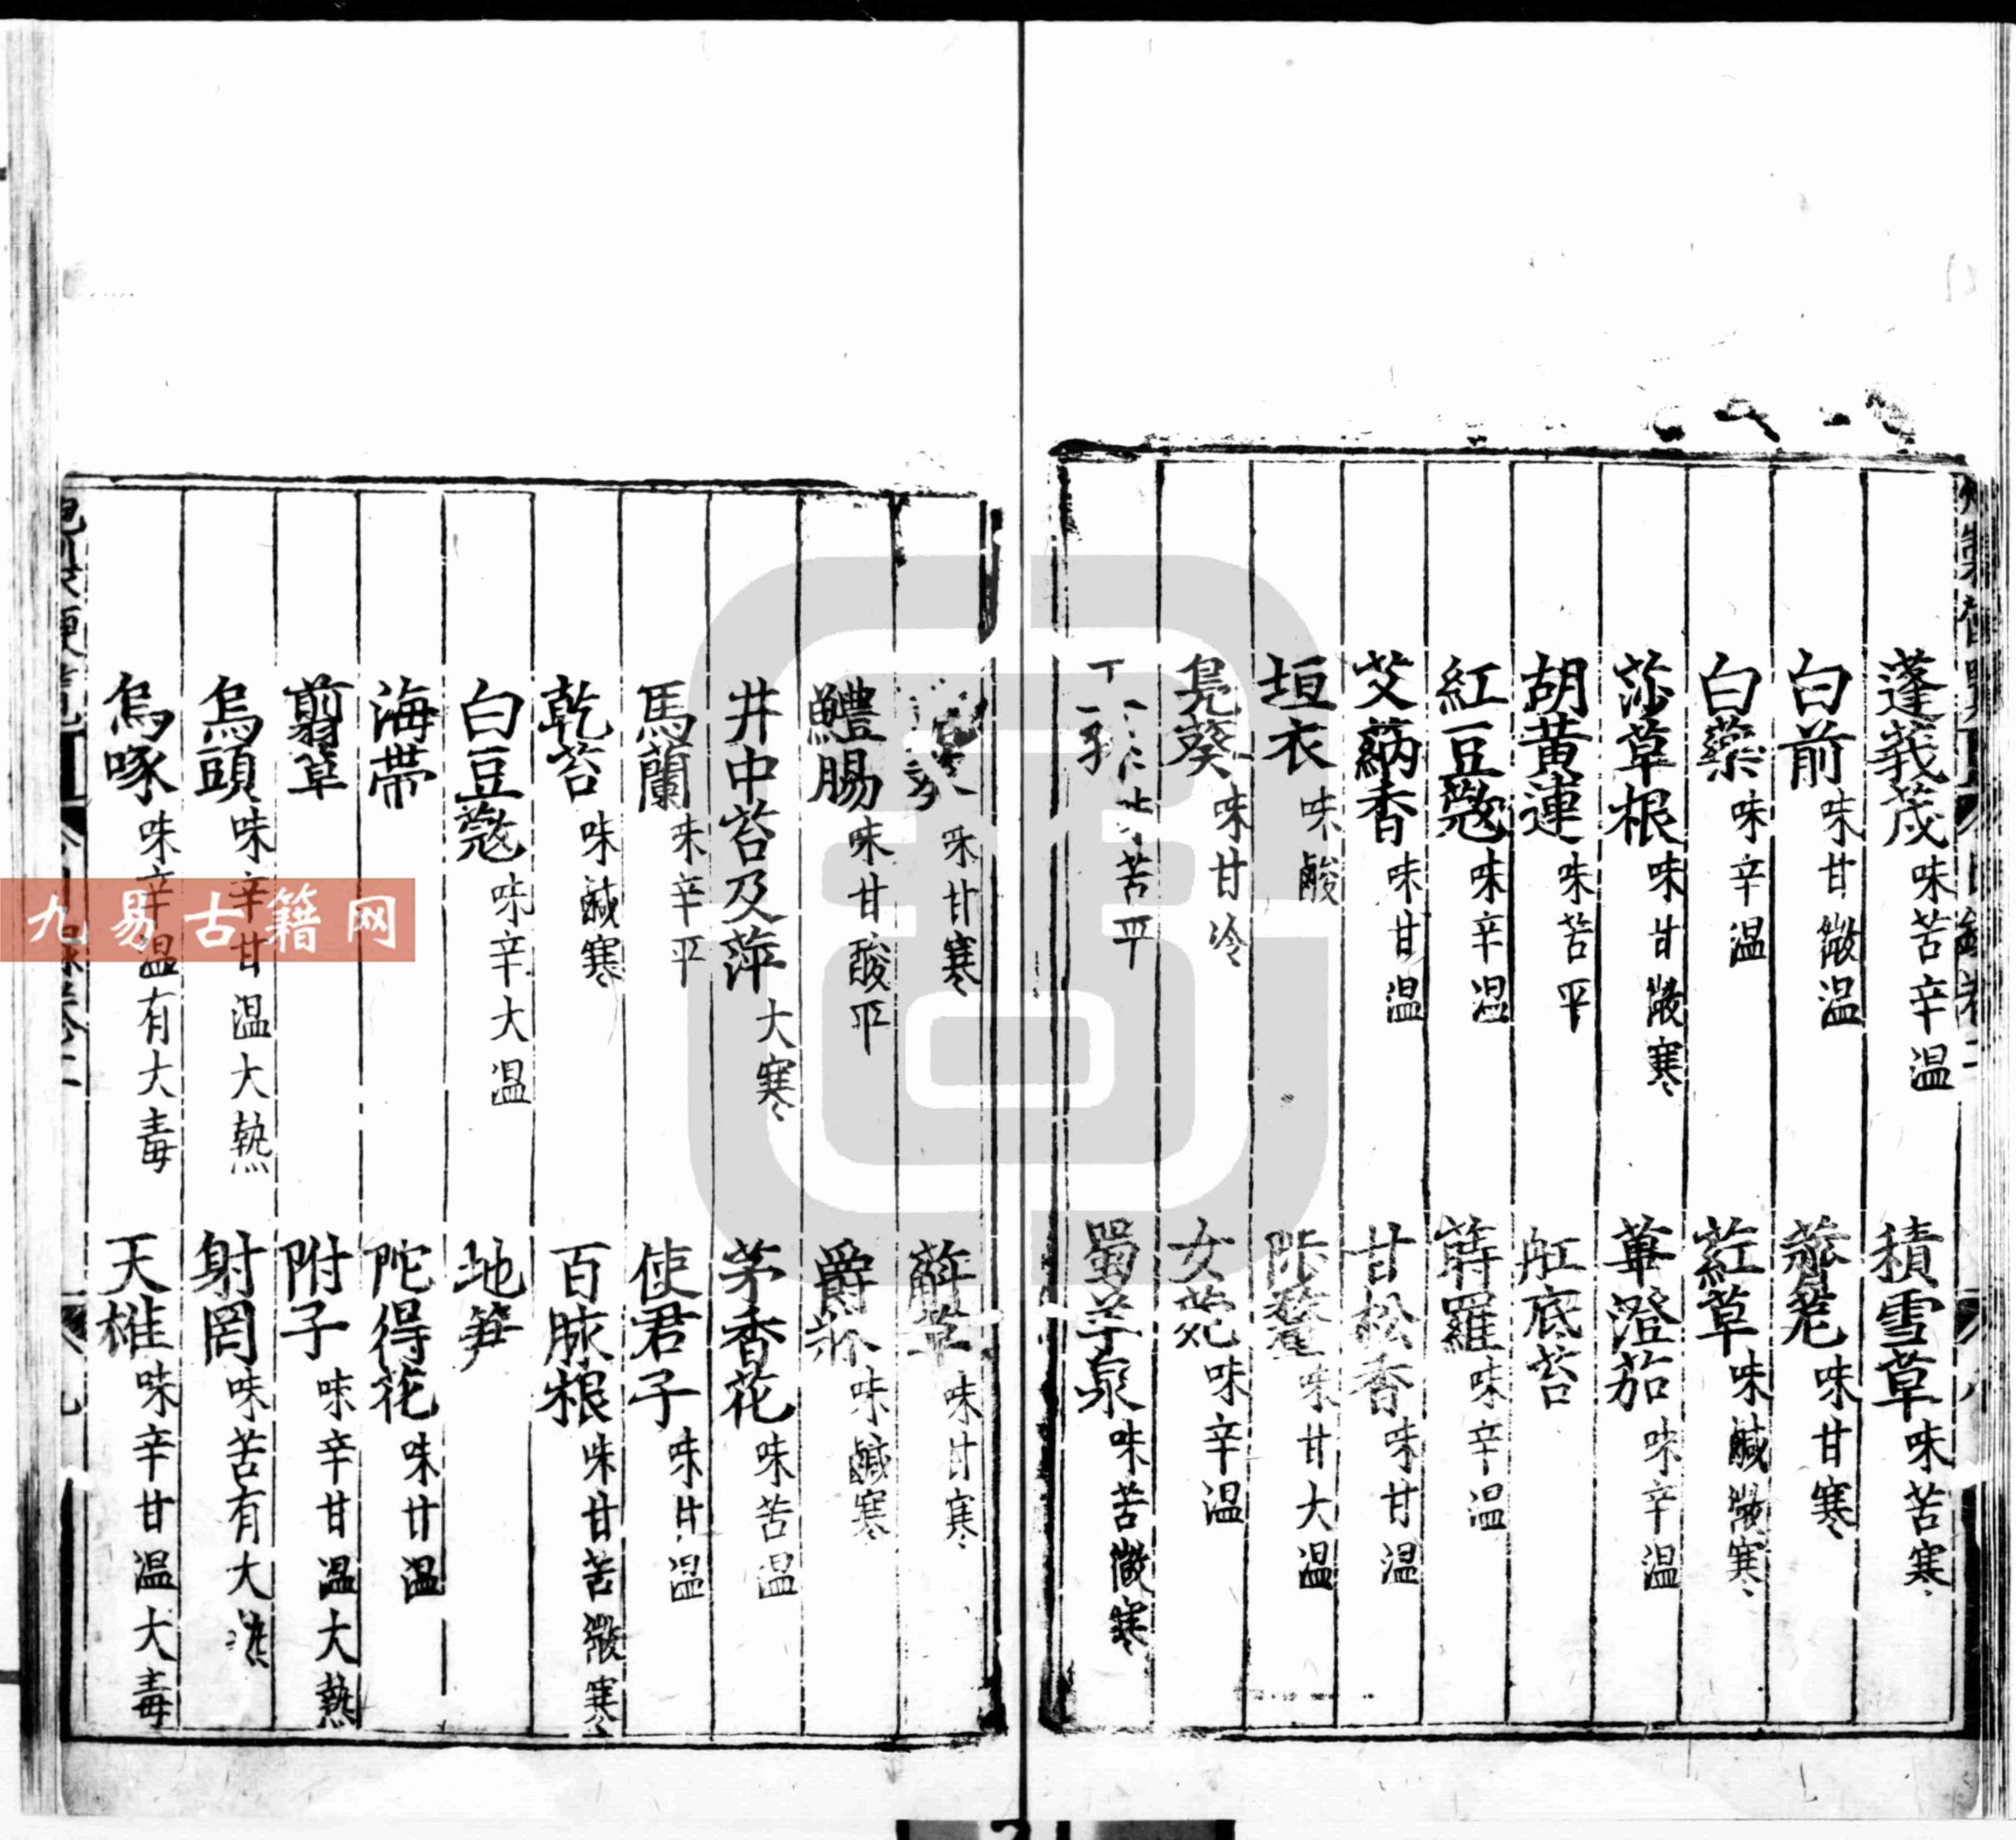 蓬莪茂味苦辛温　積雪草味苦寒
白前味甘微温　味甘寒
白藥味辛温　葒草味鹹微寒
莎草根味甘微寒　蓽澄茄味辛温
胡黄連味苦平　舡底苔
紅豆蔻味辛温　蒔羅味辛温
艾蒳香味甘温　甘松香味甘温
垣衣味酸　味甘大温
鳧葵味甘冷　女菀味辛温
苦平　蜀羊泉味苦微寒
味甘寒　味甘寒
鱧腸味甘酸平　爵味鹹寒
井中苔及萍大寒　茅香花味苦温
馬蘭味辛平　使君子味甘温
乾苔味鹹寒　百脉根味甘苦微寒
白豆蔻味辛大温　地笋
海帶　陀得花味甘温
翦草　附子味辛甘温大熱
烏頭味辛甘温大熱　射罔味苦有大
烏啄味辛温有大毒　天槯味辛甘温大毒
九易古籍网